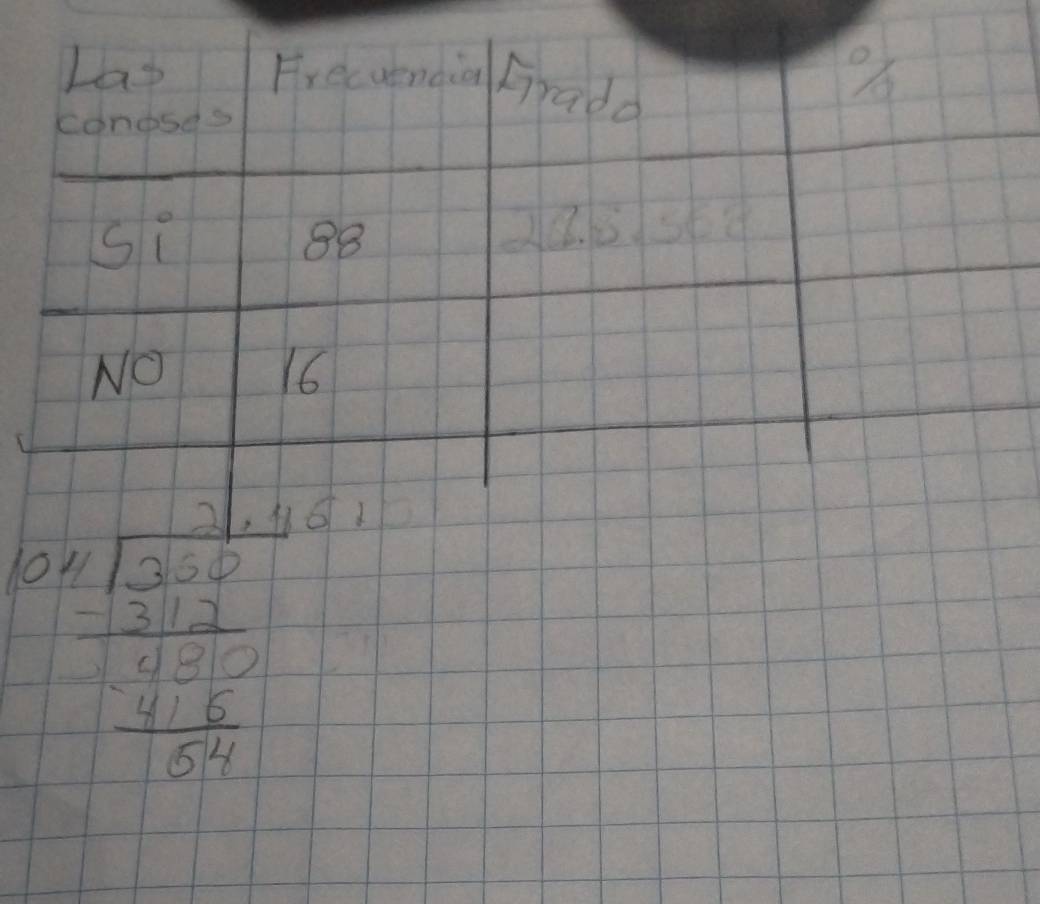 Las conoses Frecuencia Grado %
Si 88
NO 16
2.461
104 360
- 312
480
416
64